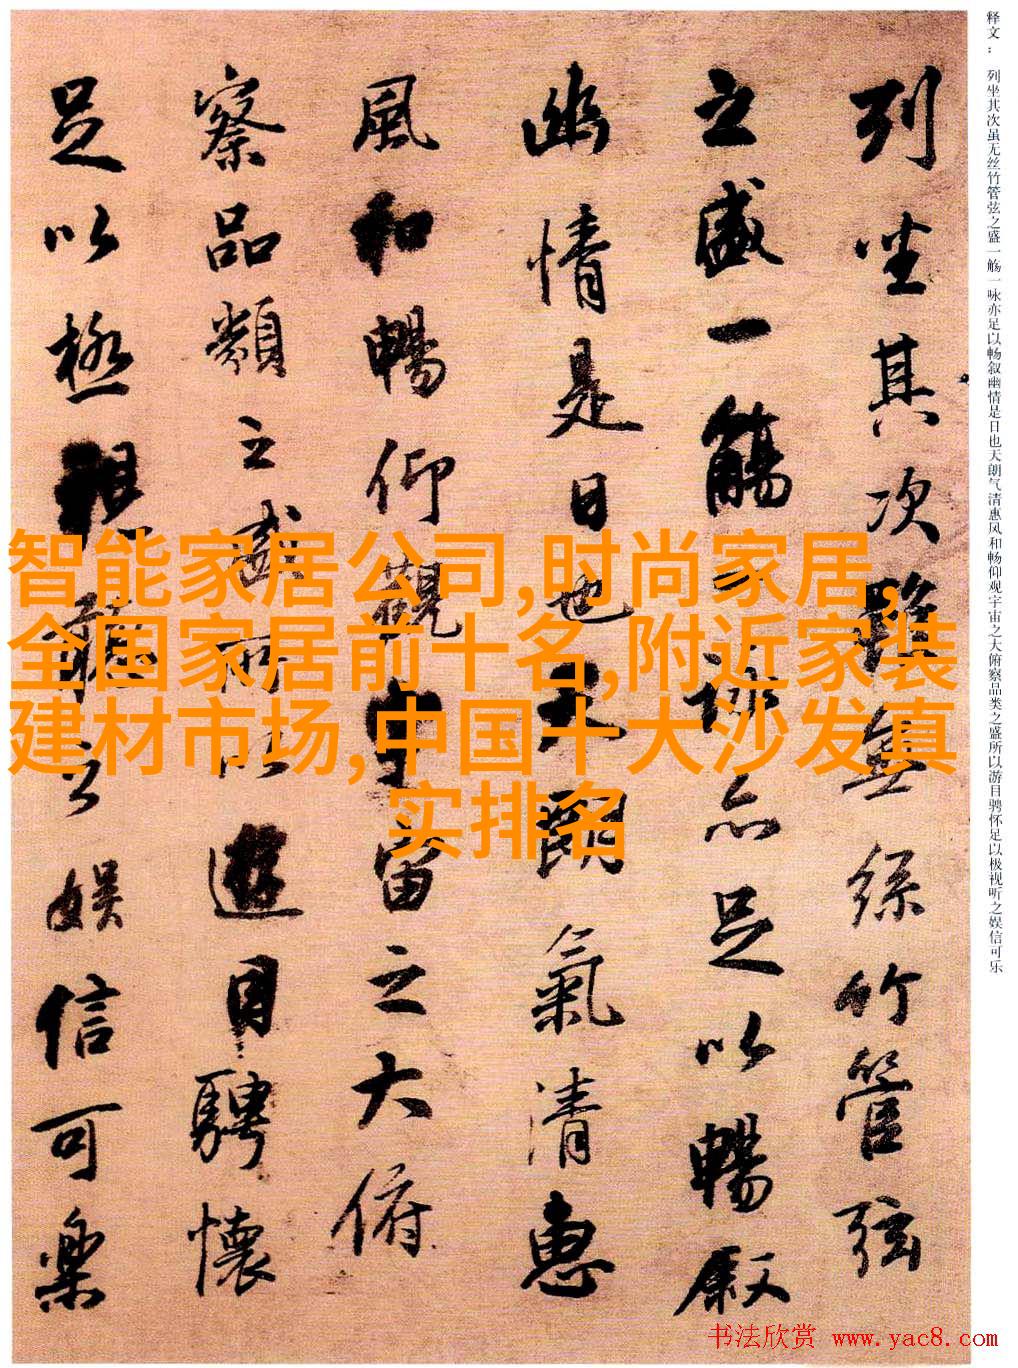 列坐其次雖無絲竹管弦
之盛一觴一詠亦足以暢叙
幽情是日也天朗氣清惠
風和暢仰觀宇宙之大俯
察品類之盛所以遊目騁懷
足以極視聽之娱信可樂
释文： 列坐其次虽无丝竹管弦之盛一觞一咏亦足以畅叙幽情是日也天朗气清惠风和畅仰观宇宙之大俯察品类之盛所以游目骋怀足以极视听之娱信可乐
智能家居公司,时尚家居,
全国家居前十名,附近家装
建材市场,中国十大沙发真
实排名
书法欣赏 www.yac8.com